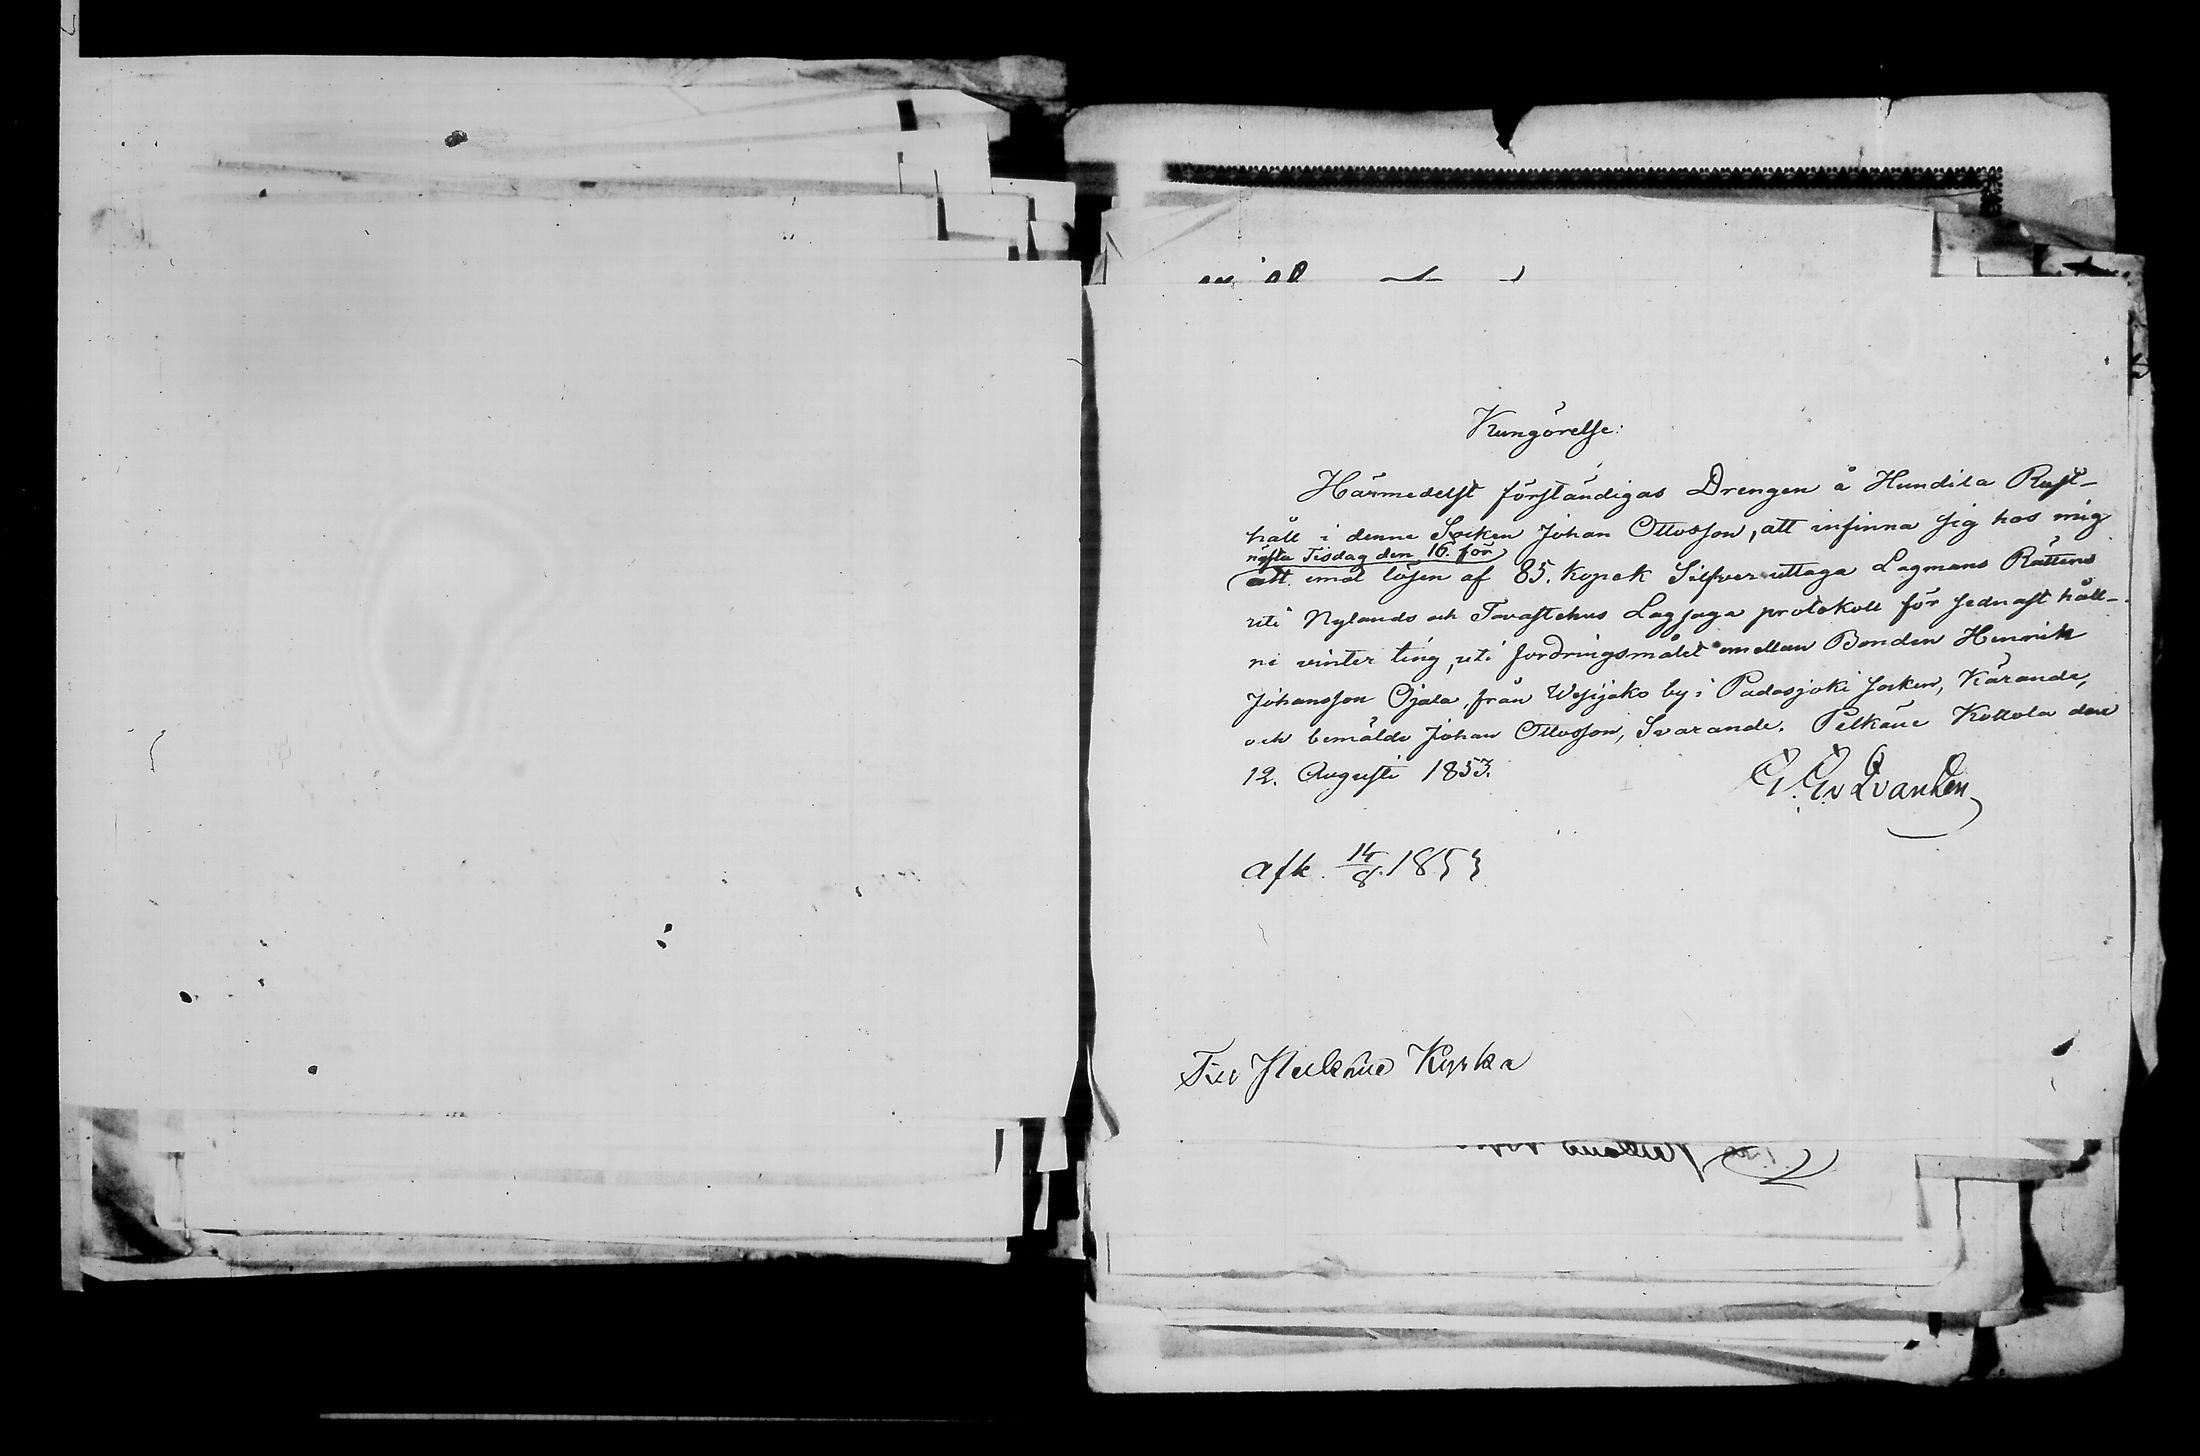 Kungörelse:
Härmedelst förständigas Drengen å Hundila Rust-
håll i denne Socken Johan Ottosson, att infinna sig hos mig
nästa Tisdag den 16. för
att emot lösen af 85. kopek Silfver uttaga Lagmans Rättens
uti Nylands och Tavastehus Lagsaga protokoll för sednast håll-
ne vinter ting, uti fordringsmålet emellan Bonden Henrik
Johansson Ojala, från Wesijako by i Padasjoki socken, Kärande,
och bemälde Johan Ottosson, Svarande. Pelkäne Kottola den
12. Augusti 1853.
afk. 14/8. 1853
Till Pelkäne Kyrka